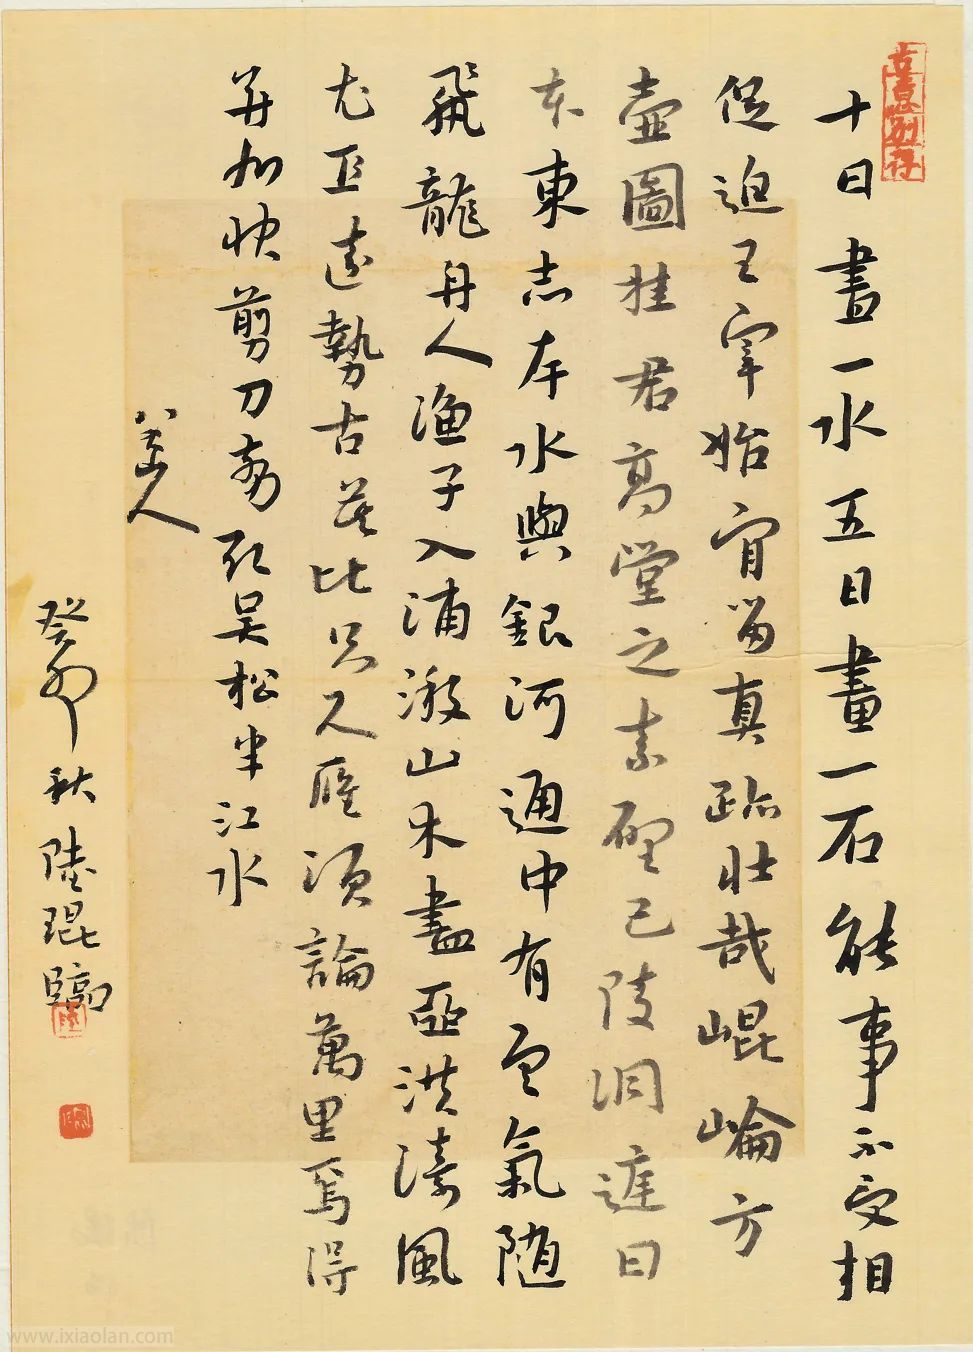 十日畫一水五日畫一石能事不受相
促迫王宰始肯留真跡壯哉崐崘方
壺圖挂君高堂之素壁巴陵洞庭日
本東赤岸水與銀河通中有雲氣隨
飛龍舟人漁子入浦漵山木盡亞洪濤風
尤工遠勢古莫比咫尺應須論萬里焉得
并州快剪刀剪取吳松半江水
八大山人
癸卯秋陸琨臨
www.ixiaolan.com